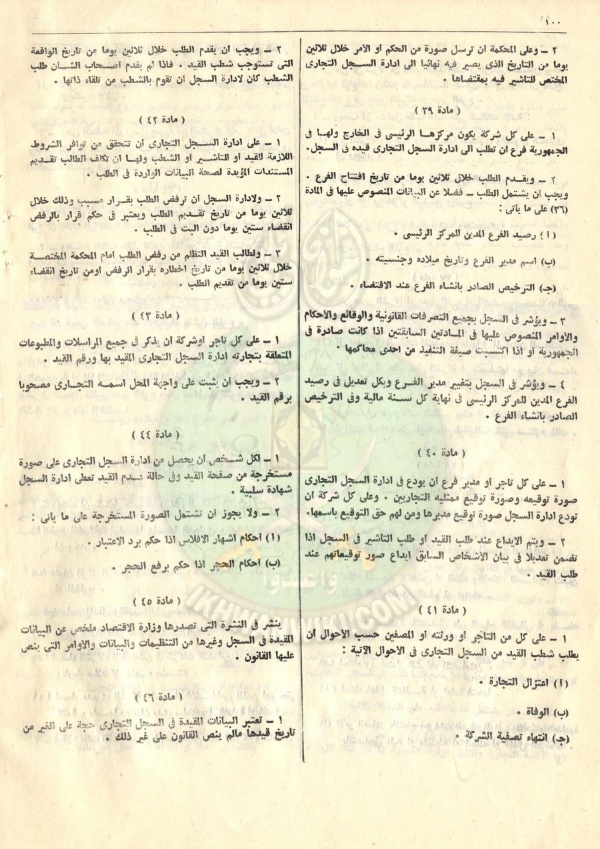 ١٠٠
٢ ــ وعلى المحكمة ان ترسل صورة من الحكم او الأمر خلال ثلاثين
يوما من التاريخ الذى يصير فيه نهائيا الى ادارة السجل التجارى
المختص للتأشير فيه بمقتضاها ٠
( مادة ٣٩ )
١ ــ على كل شركة يكون مركزها الرئيسى في الخارج ولها فى
الجمهورية فرع ان تطلب الى ادارة السجل التجارى قيده فى السجل٠
٢ ــ ويقدم الطلب خلال ثلاثين يوما من تاريخ افتتاح الفرع ٠
ويجب ان يشتمل الطلب ــ فضلا عن البيانات المنصوص عليها فى المادة
(٣٦) على ما يأتى :
( أ ) رصيد الفرع المدين للمركز الرئيسى ٠
(ب) اسم مدير الفرع وتاريخ ميلاده وجنسيته ٠
(ج) الترخيص الصادر بانشاء الفرع عند الاقتضاء ٠
٣ ــ ويؤشر فى السجل بجميع التصرفات القانونية والوقائع والأحكام
والأوامر المنصوص عليها فى المادتين السابقتين اذا كانت صادرة فى
الجمهورية أو اذا اكتسبت صيغة التنفيذ من احدى محاكمها ٠
٤ ــ ويؤشر فى السجل بتغيير مدير الفرع وبكل تعديل فى رصيد
الفرع المدين للمركز الرئيسى فى نهاية كل سنة مالية وفى الترخيص
الصادر بانشاء الفرع ٠
( مادة ٤٠ )
١ ــ على كل تاجر او مدير فرع ان يودع فى ادارة السجل التجارى
صورة توقيعه وصورة توقيع ممثليه التجاريين ٠ وعلى كل شركة ان
تودع ادارة السجل صورة توقيع مديرها ومن لهم حق التوقيع باسمها٠
٢ ــ ويتم الايداع عند طلب القيد أو طلب التأشير فى السجل اذا
تضمن تعديلا فى بيان الأشخاص السابق ايداع صور توقيعاتهم عند
طلب القيد ٠
( مادة ٤١ )
١ ــ على كل من التاجر او ورثته او المصفين حسب الأحوال ان
يطلب شطب القيد من السجل التجارى فى الأحوال الآتية :
(أ) اعتزال التجارة ٠
(ب) الوفاة ٠
(جـ) انتهاء تصفية الشركة ٠
٢ ــ ويجب ان يقدم الطلب خلال ثلاثين يوما من تاريخ الواقعة
التى تستوجب شطب القيد ٠ فاذا لم يقدم اصحاب الشأن طلب
الشطب كان لادارة السجل ان تقوم بالشطب من تلقاء ذاتها ٠
( مادة ٤٢ )
١ ــ على ادارة السجل التجارى ان تتحقق من توافر الشروط
اللازمة للقيد او للتأشير او الشطب ولها ان تكلف الطالب تقديم
المستندات المؤيدة لصحة البيانات الواردة فى الطلب ٠
٢ ــ ولادارة السجل ان ترفض الطلب بقرار مسبب وذلك خلال
ثلاثين يوما من تاريخ تقديم الطلب ويعتبر فى حكم قرار بالرفض
انقضاء ستين يوما دون البت فى الطلب ٠
٣ ــ ولطالب القيد التظلم من رفض الطلب امام المحكمة المختصة
خلال ثلاثين يوما من تاريخ اخطاره بقرار الرفض اومن تاريخ انقضاء
ستين يوما من تقديم الطلب ٠
( مادة ٤٣ )
١ ــ على كل تاجر اوشركة ان يذكر فى جميع المراسلات والمطبوعات
المتعلقة بتجارته ادارة السجل التجارى المقيد بها ورقم القيد ٠
٢ ــ ويجب ان يثبت على واجهة المحل اسمه التجارى مصحوبا
برقم القيد ٠
( مادة ٤٤ )
١ ــ لكل شخص ان يحصل من ادارة السجل التجارى على صورة
مستخرجة من صفحة القيد وفى حالة عدم القيد تعطى ادارة السجل
شهادة سلبية ٠
٢ ــ ولا يجوز ان تشتمل الصورة المستخرجة على ما يأتى :
(أ) أحكام اشهار الافلاس اذا حكم برد الاعتبار ٠
(ب) أحكام الحجر اذا حكم برفع الحجر ٠
( مادة ٤٥ )
ينشر فى النشرة التى تصدرها وزارة الاقتصاد ملخص عن البيانات
المقيدة فى السجل وغيرها من التنظيمات والبيانات والأوامر التى ينص
عليها القانون ٠
( مادة ٤٦ )
١ ــ تعتبر البيانات المقيدة فى السجل التجارى حجة على الغير من
تاريخ قيدها مالم ينص القانون على غير ذلك ٠
وأعدوا